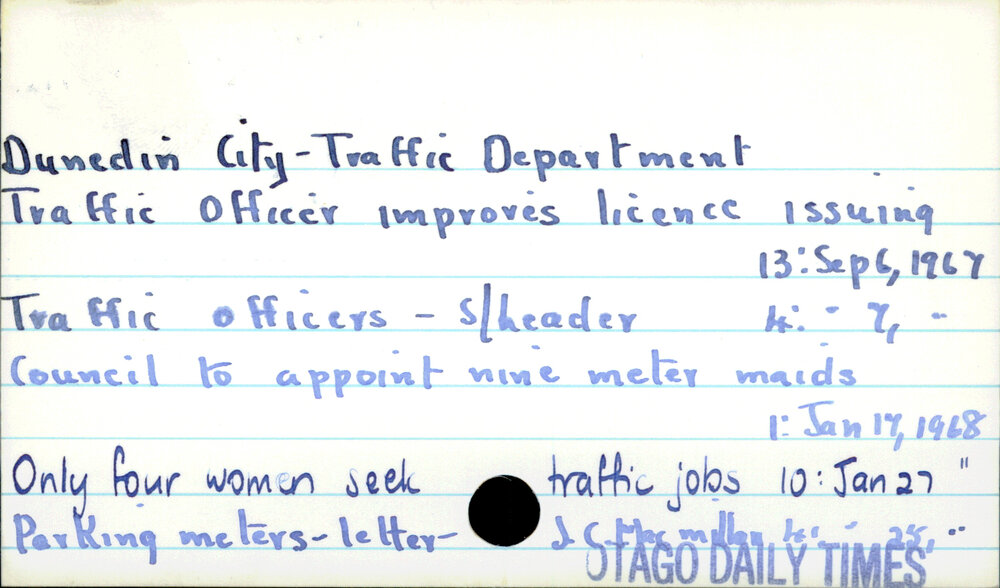 Dunedin City-Traffic Department
Traffic Officer improves licence issuing
13: Sep 6, 1967
Traffic officers - s/header 4: " 7, "
Council to appoint nine meter maids
1: Jan 17, 1968
Only four women seek traffic jobs 10: Jan 27 "
Parking meters- letter- J C MacMillan 4: " 25, "
OTAGO DAILY TIMES